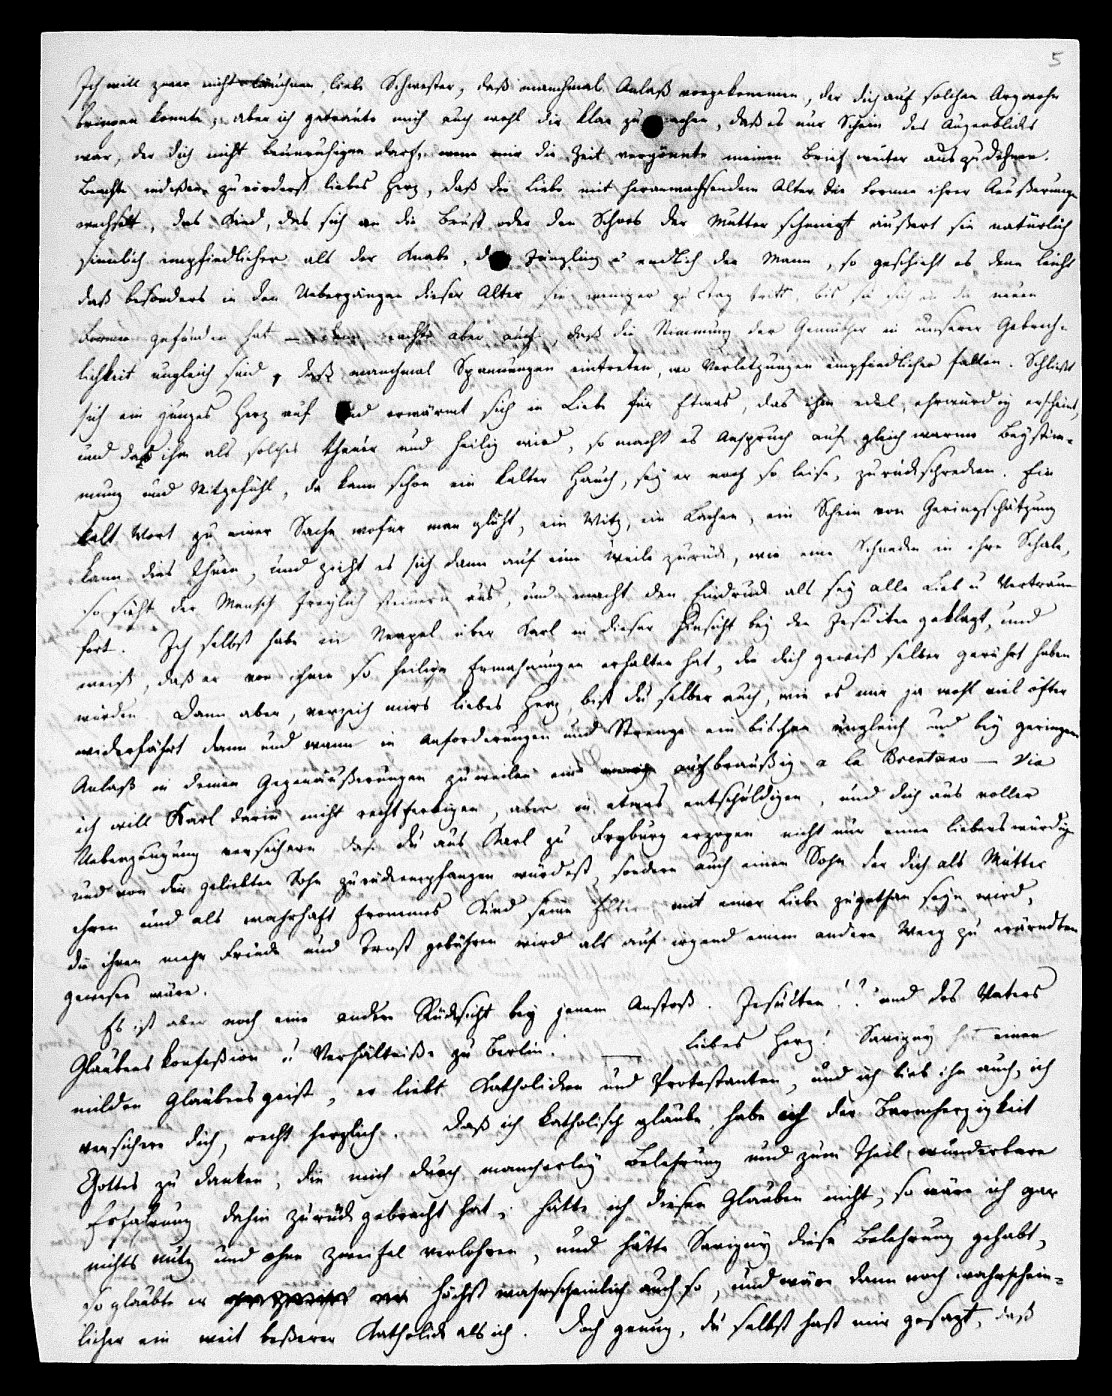 5
Ich will zwar nicht läuchnen, liebe Schwester, daß manchmal Anlaß vorgekommen, der dich auf solchen Argwohn
bringen konnte, aber ich getraute mich auch wohl dir klar zu machen, daß es nur Schein des Augenblicks
war, der dich nicht beunruhigen darf, wenn mir die Zeit vergönnte meinen Brief weiter auszudehnen.
Beachte indeßen zuvörderst liebes Herz, daß die Liebe mit heranwachsendem Alter die Formen ihrer Aeußerung
wechselt, das Kind, das sich an die Brust oder den Schoos der Mutter schmiegt äußert sie natürlich
sinnlich empfindlicher als der Knabe, der Jüngling u endlich der Mann, so geschieht es denn leicht
daß besonders in den Uebergängen dieser Alter sie weniger zu Tag tritt bis sie sich in die neuen
Formen gefunden hat — aber auch, daß die Stimmung der Gemüther in unserer Gebrech-
lichkeit ungleich sind, daß manchmal Spannungen eintreten, wo Verletzungen empfindlicher fallen. Schließt
sich ein junges Herz auf und erwärmt sich in Liebe für Etwas, das ihm edel, ehrwürdig erscheint,
und das ihm als solches theuer und heilig wird, so macht es Anspruch auf gleich warme Beystim-
mung und Mitgefühl, da kann schon ein kalter Hauch, sey er noch so leise, zurückschrecken. Ein
kalt Wort zu einer Sache wofür man glüht, ein Witz, ein Lachen, ein Schein von Geringschätzung
kann dies thuen, und zieht es sich dann auf eine Weile zurück, wie eine Schnecke in ihre Schale,
so sieht der Mensch freylich steinern aus, und macht den Eindruck als sey alle Lieb u Vertrauen
fort. Ich selbst habe in Neapel über Karl in dieser Hinsicht bey den Jesuiten geklagt, und
weiß, daß er von ihnen so heilige Ermahnungen erhalten hat, die dich gewiß selber gerührt haben
würden. Dann aber, verzeih mirs liebes Herz, bist du selber auch, wie es mir ja wohl viel öfter
widerfährt dann und wann in Anforderungen und Strenge ein bischen ungleich und bey geringem
Anlaß in deinen Gegenäußerungen zuweilen eine aufbraußig a la Brentano — Sie
ich will Karl darin nicht rechtfertigen, aber in etwas entschuldigen, und dich aus voller
Ueberzeugung versichern daß du aus Karl zu Fryburg erzogen nicht nur einen liebenswürdig
und von dir geliebten Sohn zurückempfangen würdest, sondern auch einen Sohn der dich als Mutter
ehren und als wahrhaft frommes Kind seine Eltern mit einer Liebe zugethan seyn wird,
die ihnen mehr Friede und Trost gebähren wird als auf irgend einem andern Weeg zu erärndten
gewesen wäre.
Es ist aber noch eine andre Rücksicht bey jenem Anstoß. Jesuiten!? und des Vaters
Glaubenskonfeßion u Verhältniße zu Berlin. — Liebes Herz! Savigny hat einen
milden Glaubensgeist, er liebt Katholicken und Protestanten, und ich lieb ihn auch, ich
versichere dich, recht herzlich. Daß ich katholisch glaube, habe ich der Barmherzigkeit
Gottes zu danken, die mich durch mancherley Belehrung und zum Theil wunderbare
Erfahrung dahin zurückgebracht hat, hätte ich diesen Glauben nicht, so wäre ich gar
nichts nutz und ohne Zweifel verlohren, und hätte Savigny diese Belehrung gehabt,
so glaubte er höchst wahrscheinlich auch so, und wäre dann noch wahrschein-
licher ein weit beßerer Katholick als ich. Doch genug, du selbst hast mir gesagt, daß